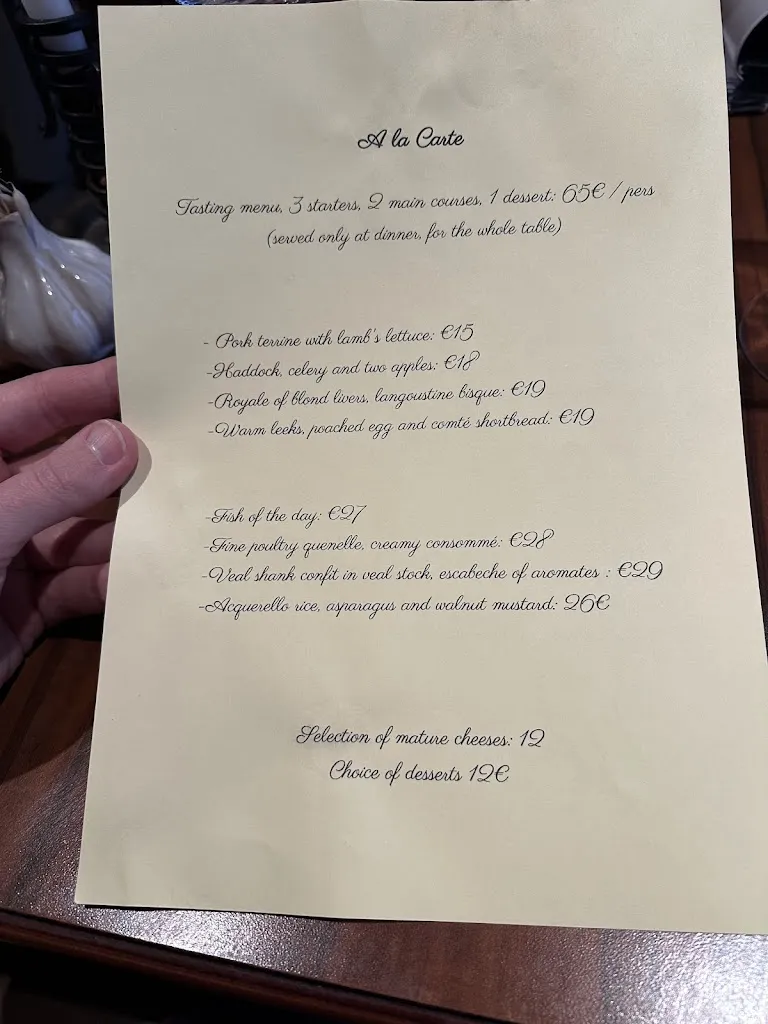 A la Carte
Tasting menu, 3 starters, 2 main courses, 1 dessert: 65€ / pers
(served only at dinner, for the whole table)
- Pork terrine with lamb's lettuce: €15
-Haddock, celery and two apples: €18
-Royale of blond livers, langoustine bisque: €19
-Warm leeks, poached egg and comté shortbread: €19
-Fish of the day: €27
-Fine poultry quenelle, creamy consommé: €28
-Veal shank confit in veal stock, escabeche of aromates : €29
-Acquerello rice, asparagus and walnut mustard: 26€
Selection of mature cheeses: 12
Choice of desserts 12€